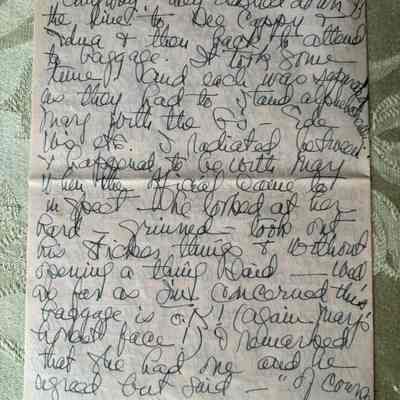 the line to see Cappy &
Edna & then back to attend
to baggage. It took some
time and each was separate
as they had to stand alphabetically
Mary with the G's - Sade
W's etc. I radiated between.
I happened to be with Mary
when the official came to
inspect - He looked at her
hard - grinned - took out
his sticker things & without
opening a thing said - Well
as far as I'm concerned this
baggage is O.K.! (again Mary's
honest face!) I remarked
that she had one and he
agreed but said - "of course